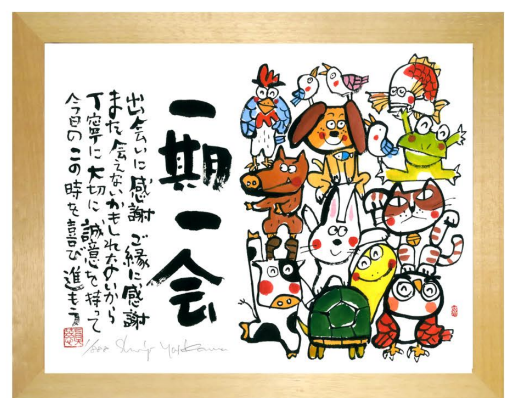 一期一会
出会いに感謝 ご縁に感謝
また会えないかもしれないから
丁寧に大切に誠意を持って
今日のこの時を喜び進もう